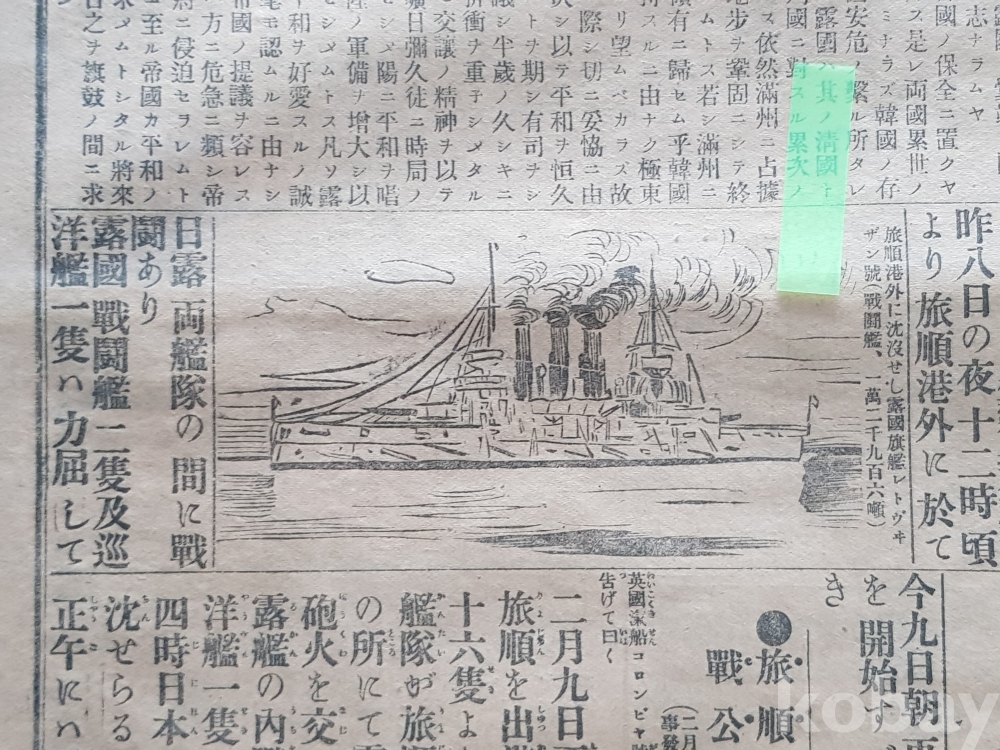 志ナラムヤ
國ノ保全ニ置クヤ
ス是レ両國累世ノ
ミナラズ韓國ノ存
安危ノ繫ル所タレ
露國ハ其ノ淸國ト
國ニ對スル累次ノ
ス依然滿州ニ占據
地步ヲ鞏固ニシテ終
ムトス若シ滿州ニ
領有ニ歸セム乎韓國
持スルニ由ナク極東
リ望ムベカラズ故
際シ切ニ妥協ニ由
決シ以テ平和ヲ恒久
トヲ期シ有司ヲシ
議シ半歲ノ久シキニ
折衝ヲ重子シメタル
モ交讓ノ精神ヲ以テ
曠日彌久徒ニ時局ノ
シメ陽ニ平和ヲ唱
陸ノ軍備ヲ增大シ以
シメムトス凡ソ露
平和ヲ好愛スルノ誠
毫モ認ムルニ由ナシ
帝國ノ提議ヲ容レス
方ニ危急ニ瀕シ帝
ニ侵迫セラレムト
ニ至ル帝國カ平和ノ
求メムトシタル將來
日之ヲ旗鼓ノ間ニ求
昨八日の夜十二時頃
より旅順港外に於て
旅順港外に沈沒せし露國旗艦レトヴヰ
ザン號(戰鬪艦、一萬二千九百六噸)
日露両艦隊の間に戰
鬪あり
露國戰鬪艦二隻及巡
洋艦一隻ハ力屈して
今九日朝
を開始す
き
●旅順
戰公
(二月
英國滊船コロンビヤ號
告げて曰く
二月九日
旅順を出
十六隻よ
艦隊が旅
の所にて
砲火を交
露艦の內
洋艦一隻
四時日本
沈せらる
正午にハ
kobay